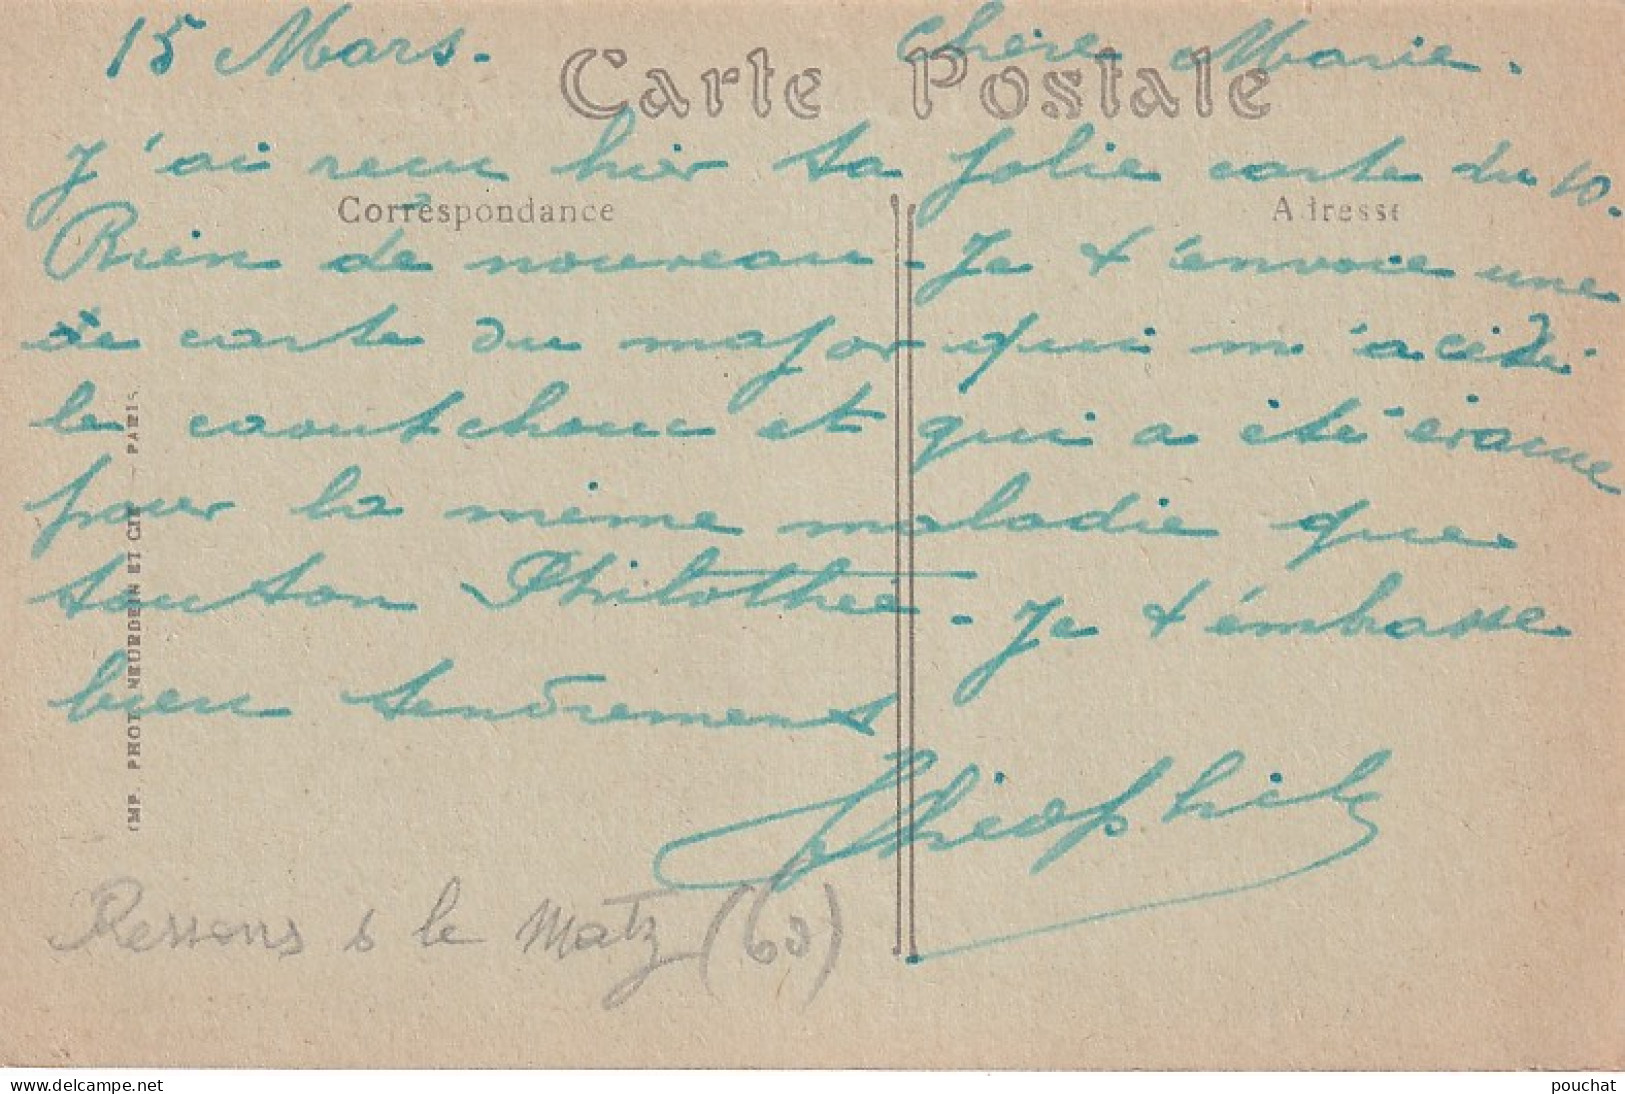 15 Mars. Chère Marie.
Carte Postale
J'ai reçu hier ta jolie carte du 10.
Correspondance
Adresse
Rien de nouveau - Je t'envoie une
carte du major qui m'a cédé
le caoutchouc et qui a été évacué
pour la même maladie que
tonton Philothée - Je t'embrasse
bien tendrement
Théophile
IMP. PHOT. NEURDEIN ET CIE - PARIS
Ressons s le Matz (60)
delcampe.net
pouchat